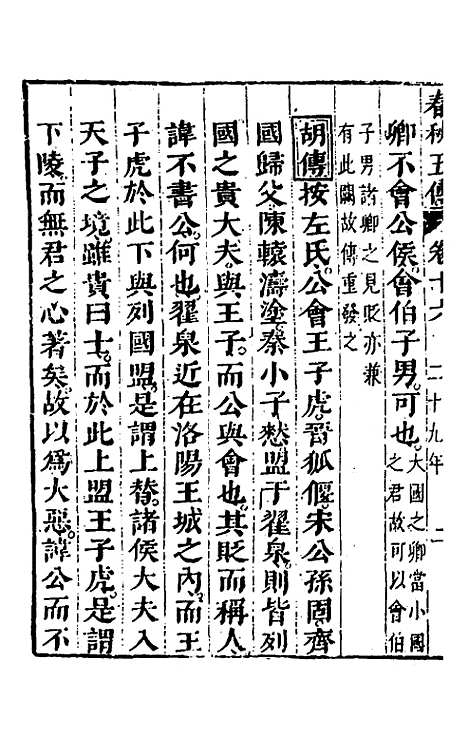 春秋五傳 卷十六 二十九年
卿不會公侯會伯子男可也大國之卿當小國之君故可以會伯
子男諸卿之見貶亦兼
有此闕故傳重發之
胡傳按左氏公會王子虎晉狐偃宋公孫固齊
國歸父陳轅濤塗秦小子憖盟于翟泉則皆列
國之貴大夫與王子而公與會也其貶而稱人
諱不書公何也翟泉近在洛陽王城之內而王
子虎於此下與列國盟是謂上替諸侯大夫入
天子之境雖貴曰士而於此上盟王子虎是謂
下陵而無君之心著矣故以為大惡諱公而不